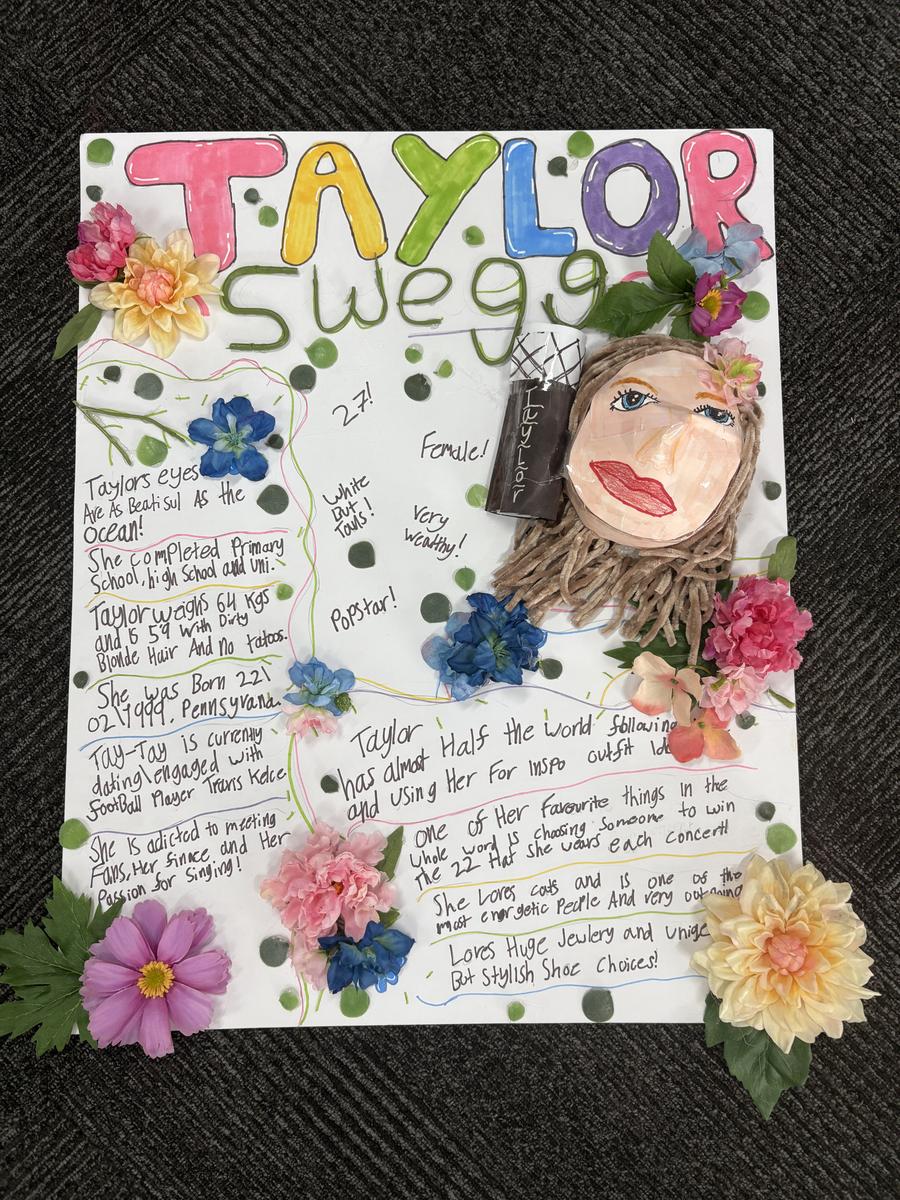 TAYLOR
Swegg
27!
Female!
Taylor
White
But
Tauls!
Very
Wealthy!
Popstar!
Taylors eyes
Are As Beatisul As the
Ocean!
She completed Primary
School, high School and Uni.
Taylor weighs 64 Kgs
and is 5'9 With Dirty
Blonde Hair And No tatoos.
She was Born 22\
02\1999, Pennsyvana.
Tay-Tay is currently
dating\engaged with
FootBall Player Travis Kelce
She is adicted to meeting
Fans, Her finnce and Her
Passion for Singing!
Taylor
has almost Half the world following
and Using Her For Inspo outfit
One of Her Favourite things In the
Whole word Is chosing Someone to win
The 22 Hat She wears each Concert!
She Loves cats and is one of the
most energetic People And very outgoing
Loves Huge Jewlery and Uniqe
But Stylish Shoe Choices!